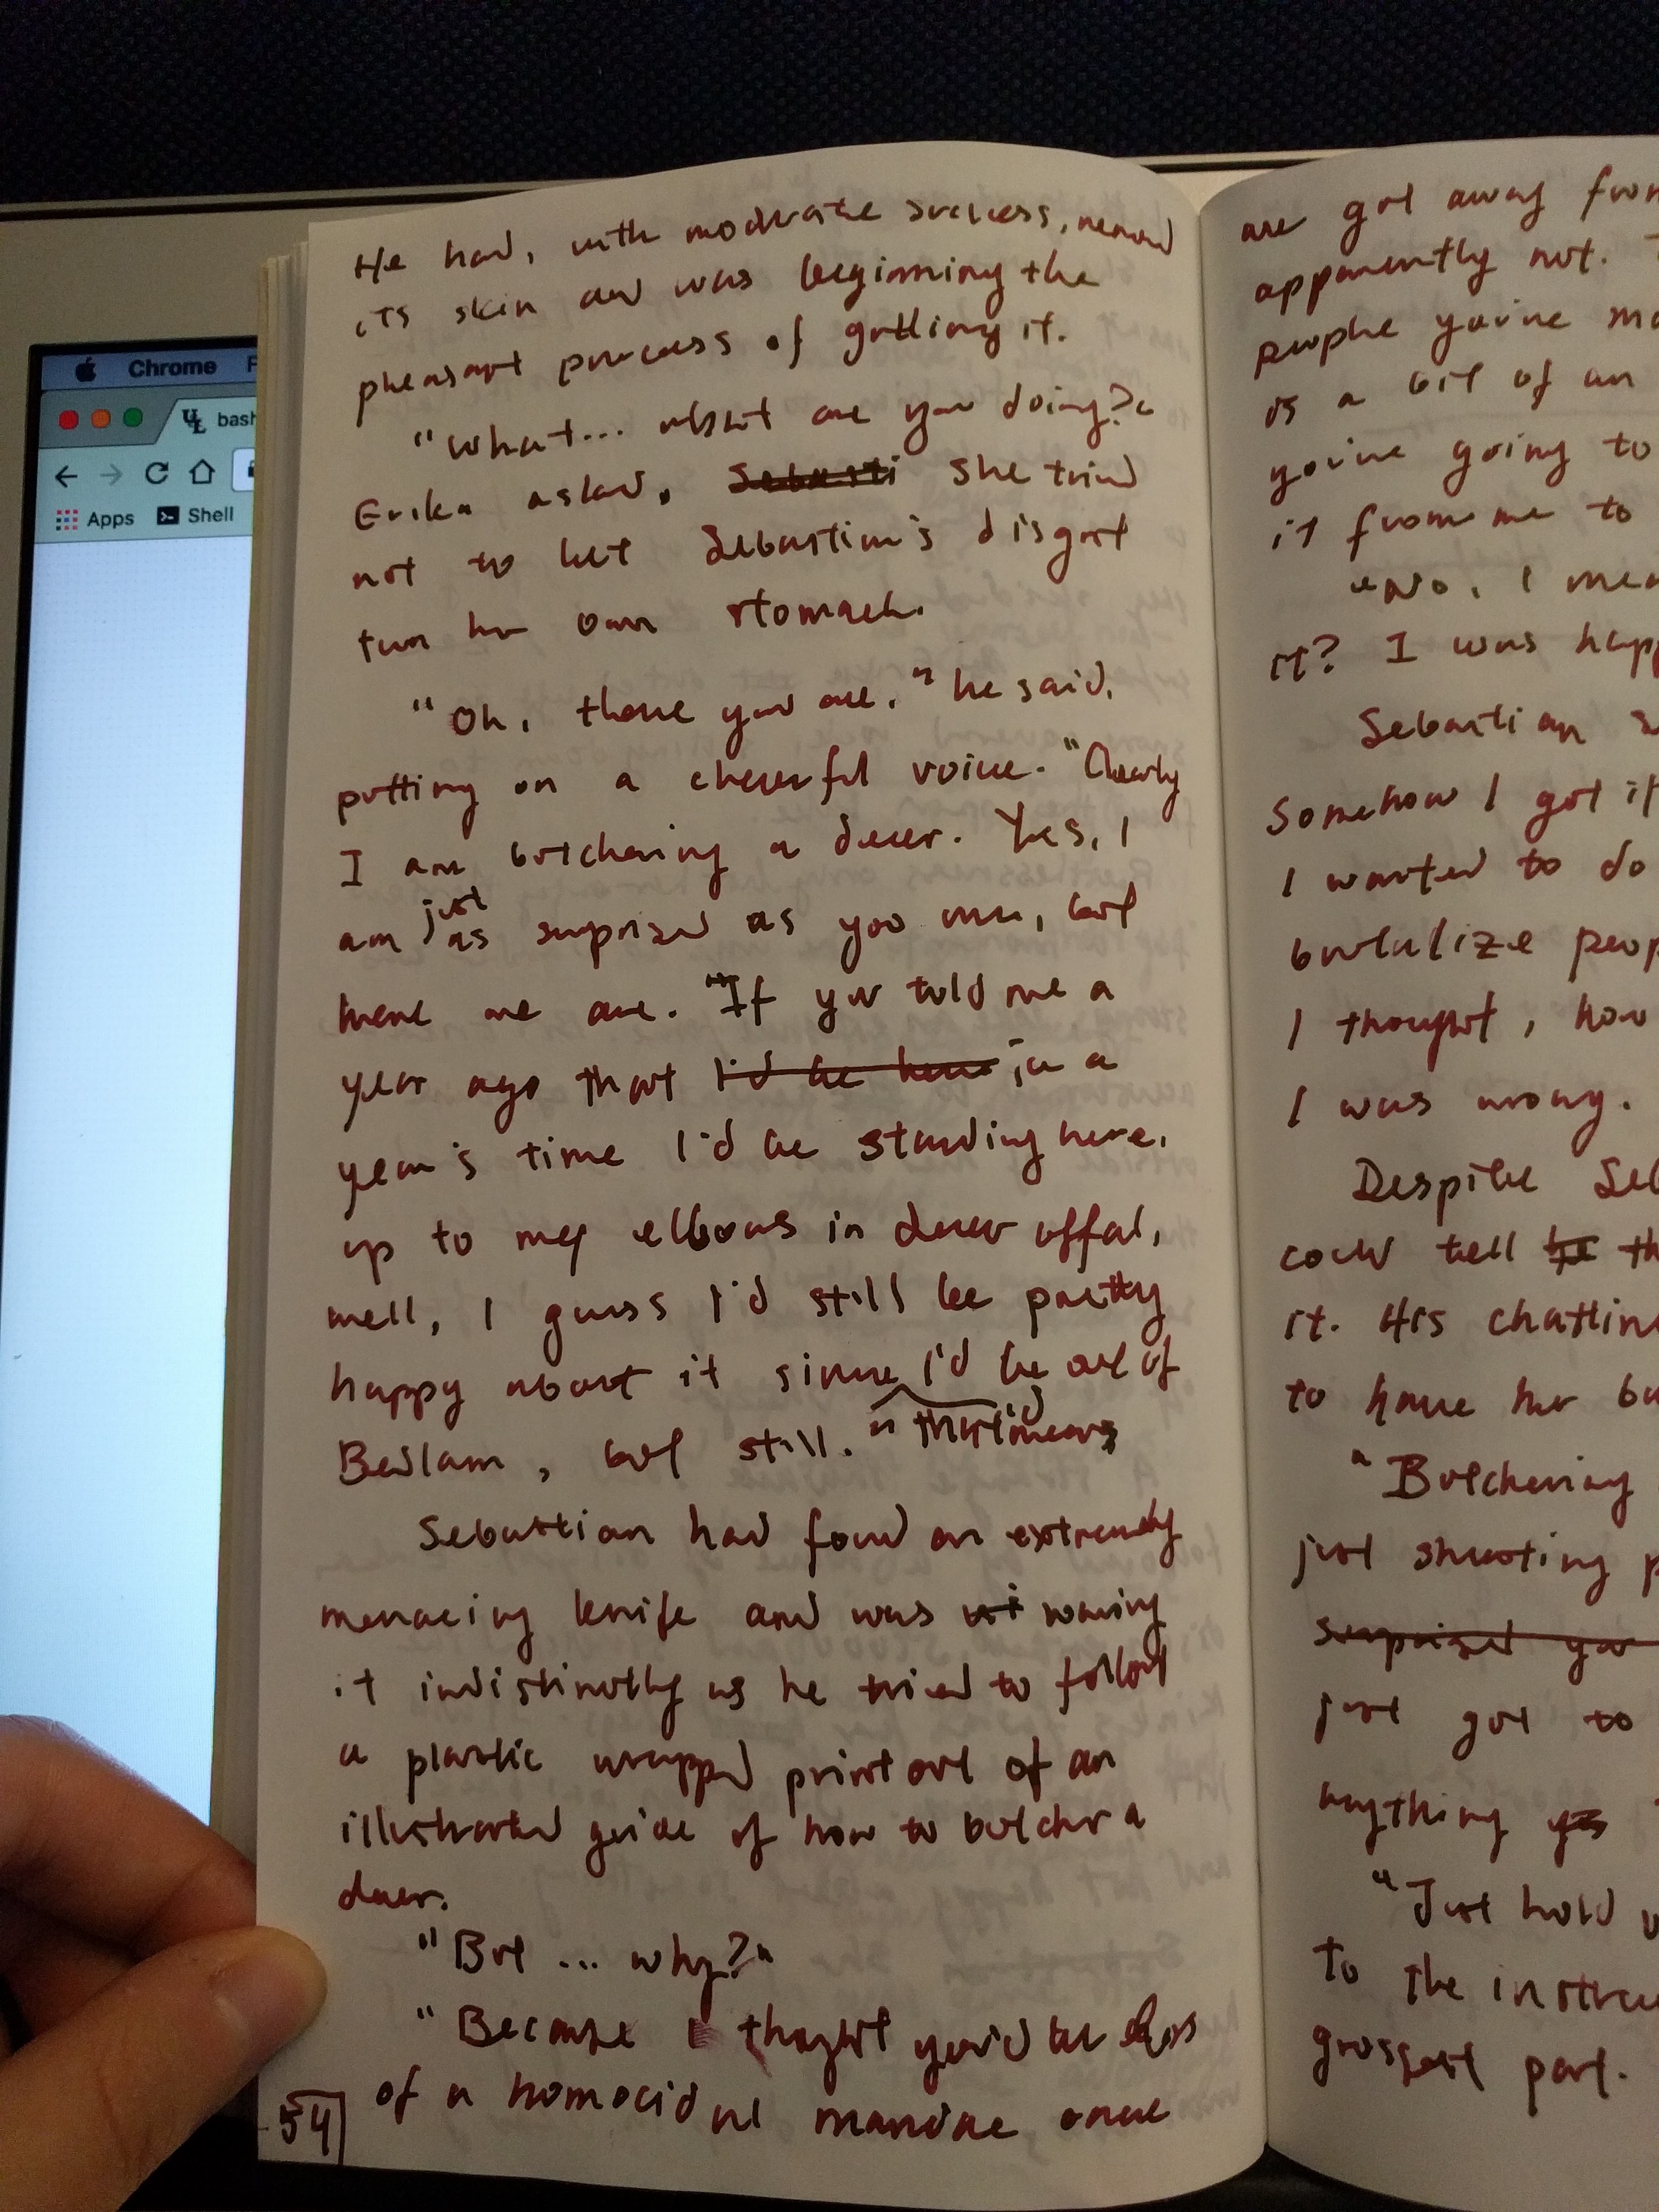 Chrome
bash
Apps
Shell
He had, with moderate success, removed
its skin and was beginning the
pleasant process of gutting it.
"What... what are you doing?"
Erika asked. Sebasti She tried
not to let Sebastian's disgust
turn her own stomach.
"Oh, there you are," he said,
putting on a cheerful voice. "Clearly
I am butchering a deer. Yes, I
am just as surprised as you are, but
here we are. "If you told me a
year ago that I'd be here in a
year's time I'd be standing here,
up to my elbows in deer offal,
well, I guess I'd still be pretty
happy about it since that'd mean I'd be out of
Bedlam, but still."
Sebastian had found an extremely
menacing knife and was wi waving
it indistinctly as he tried to follow
a plastic wrapped printout of an
illustrated guide of how to butcher a
deer.
"But ... why?"
"Because I thought you'd be less
of a homocidal maniac once
54
we got away from
apparently not.
people you've
is a bit of an
you're going to
it from me to
"No, I mean
it? I was
Sebastian
Somehow I got it
I wanted to do
brutalize
I thought, how
I was wrong.
Despite
could tell he
it. His
to have her
"Butchering
just shooting
surprised you
just got to
anything yes
"Just hold
to the
grossest part.